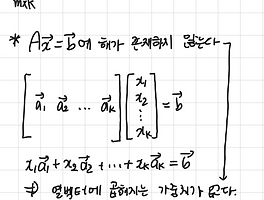 m×k
* A\vec{x}=\vec{b}에 해가 존재하지 않는다
[\vec{a}_1 \vec{a}_2 ... \vec{a}_k] [x_1 x_2 ⋮ x_k] = \vec{b}
x_1\vec{a}_1 + x_2\vec{a}_2 + ... + x_k\vec{a}_k = \vec{b}
⇒ 열벡터에 곱해지는 가중치가 없다.